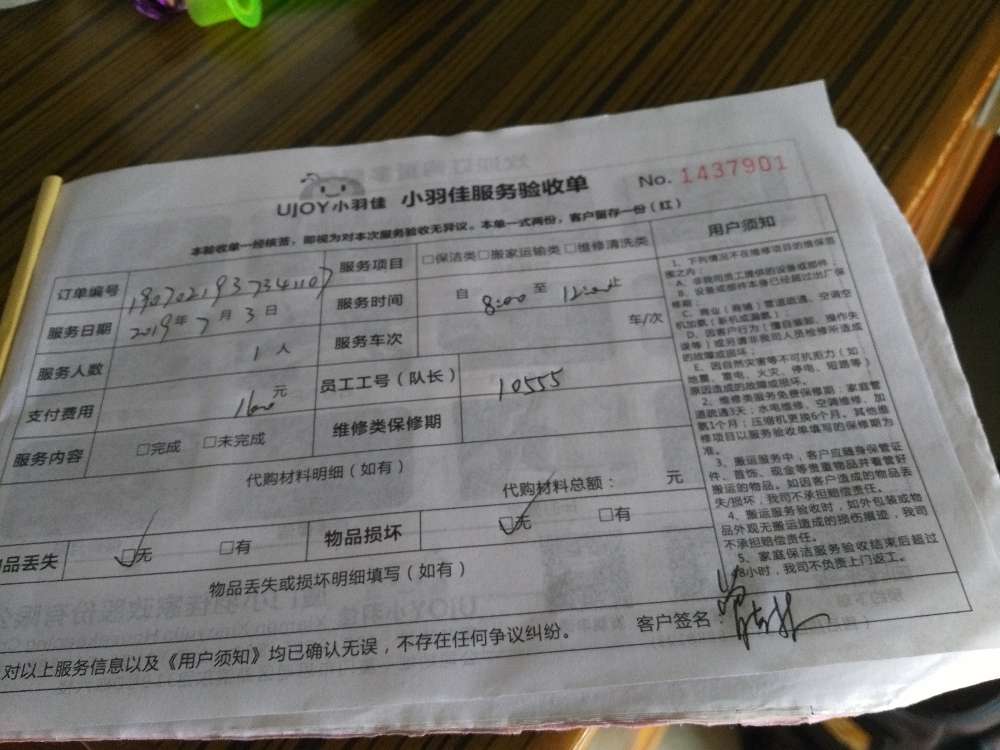 UJOY小羽佳 小羽佳服务验收单 No. 1437901
本验收单一经核签，即视为对本次服务验收无异议。本单一式两份，客户留存一份（红）
订单编号 190702193734107
服务项目 □保洁类□搬家运输类□维修清洗类
服务日期 2019年7月3日
服务时间 自 8:00 至 12:00止
服务人数 1人
服务车次 车/次
支付费用 元
员工工号（队长） 10555
服务内容 □完成 □未完成
维修类保修期
代购材料明细（如有）
代购材料总额： 元
品丢失 ☑无 □有
物品损坏 ☑无 □有
物品丢失或损坏明细填写（如有）
对以上服务信息以及《用户须知》均已确认无误，不存在任何争议纠纷。
客户签名：
用户须知
1、下列情况不在维修项目的维保范
围之内：
A、非我司员工提供的设备或部件；
B、设备或部件本身已经超过出厂保
修期；
C、商业（商铺）管道疏通、空调空
机加氨（新机或漏氨）；
D、因客户行为（擅自装卸、操作失
误等）或另请非我司人员检修所造成
的故障或损坏；
E、因自然灾害等不可抗拒力（如
地震、雷电、火灾、停电、短路等）
原因造成的故障或损坏。
2、维修类服务免费保修期：家庭管
道疏通3天；水电维修、空调维修、加
氨1个月；压缩机更换6个月。其他维
修项目以服务验收单填写的保修期为
准。
3、搬运服务中，客户应随身保管证
件、首饰、现金等贵重物品并看管好
搬运的物品。如因客户造成的物品丢
失/损坏，我司不承担赔偿责任。
4、搬运服务验收时，如外包装或物
品外观无搬运造成的损伤痕迹，我司
不承担赔偿责任。
5、家庭保洁服务验收结束后超过
48小时，我司不负责上门返工。